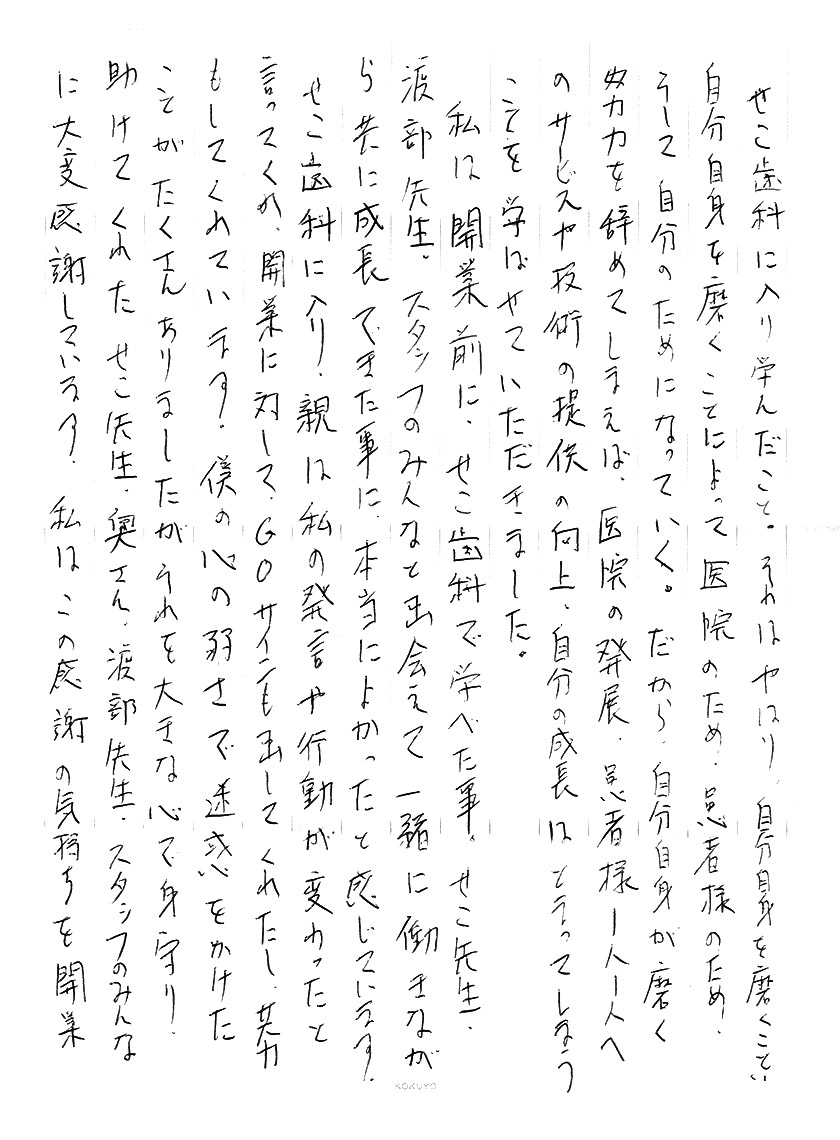 せこ歯科に入り学んだこと。それはやはり、自分自身を磨くこと…
自分自身を磨くことによって医院のため、患者様のため、
そして自分のためになっていく。だから、自分自身が磨く
努力を辞めてしまえば、医院の発展、患者様一人一人へ
のサービスや技術の提供の向上、自分の成長はとまってしまう
ことを学ばせていただきました。
私は開業前に、せこ歯科で学べた事。せこ先生、
渡部先生、スタッフのみんなと出会えて一緒に働きなが
ら共に成長できた事に、本当によかったと感じています。
せこ歯科に入り、親は私の発言や行動が変わったと
言ってくれ、開業に対して、GOサインも出してくれたし、協力
もしてくれています。僕の心の弱さで迷惑をかけた
ことがたくさんありましたがそれを大きな心で見守り、
助けてくれたせこ先生、奥さん、渡部先生、スタッフのみんな
に大変感謝しています。私はこの感謝の気持ちを開業
KOKUYO